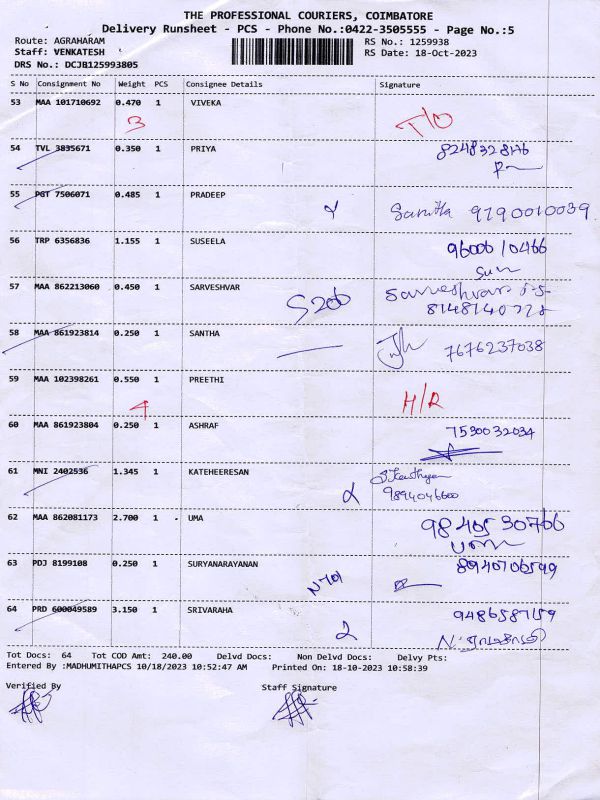 THE PROFESSIONAL COURIERS, COIMBATORE
Delivery Runsheet - PCS - Phone No.:0422-3505555 - Page No.:5
Route: AGRAHARAM RS No.: 1259938
Staff: VENKATESH RS Date: 18-Oct-2023
DRS No.: DCJB125993805
S No Consignment No Weight PCS Consignee Details Signature
53 MAA 101710692 0.470 1 VIVEKA
3 T/O
54 TVL 3835671 0.350 1 PRIYA
55 PGT 7506071 0.485 1 PRADEEP
Sanitha 9790010039
56 TRP 6356836 1.155 1 SUSEELA 9600610466
Sun
57 MAA 862213060 0.450 1 SARVESHVAR
8148140778
58 MAA 861923814 0.250 1 SANTHA
7676237038
59 MAA 102398261 0.550 1 PREETHI
4 H/R
60 MAA 861923804 0.250 1 ASHRAF 7590032034
61 MNI 2402536 1.345 1 KATEHEERESAN
2 9894046600
62 MAA 862081173 2.700 1 UMA 9840530766
Uma
63 PDJ 8199108 0.250 1 SURYANARAYANAN 8940706599
64 PRD 600049589 3.150 1 SRIVARAHA 9486587159
2
Tot Docs: 64 Tot COD Amt: 240.00 Delvd Docs: Non Delvd Docs: Delvy Pts:
Entered By :MADHUMITHAPCS 10/18/2023 10:52:47 AM Printed On: 18-10-2023 10:58:39
Verified By Staff Signature